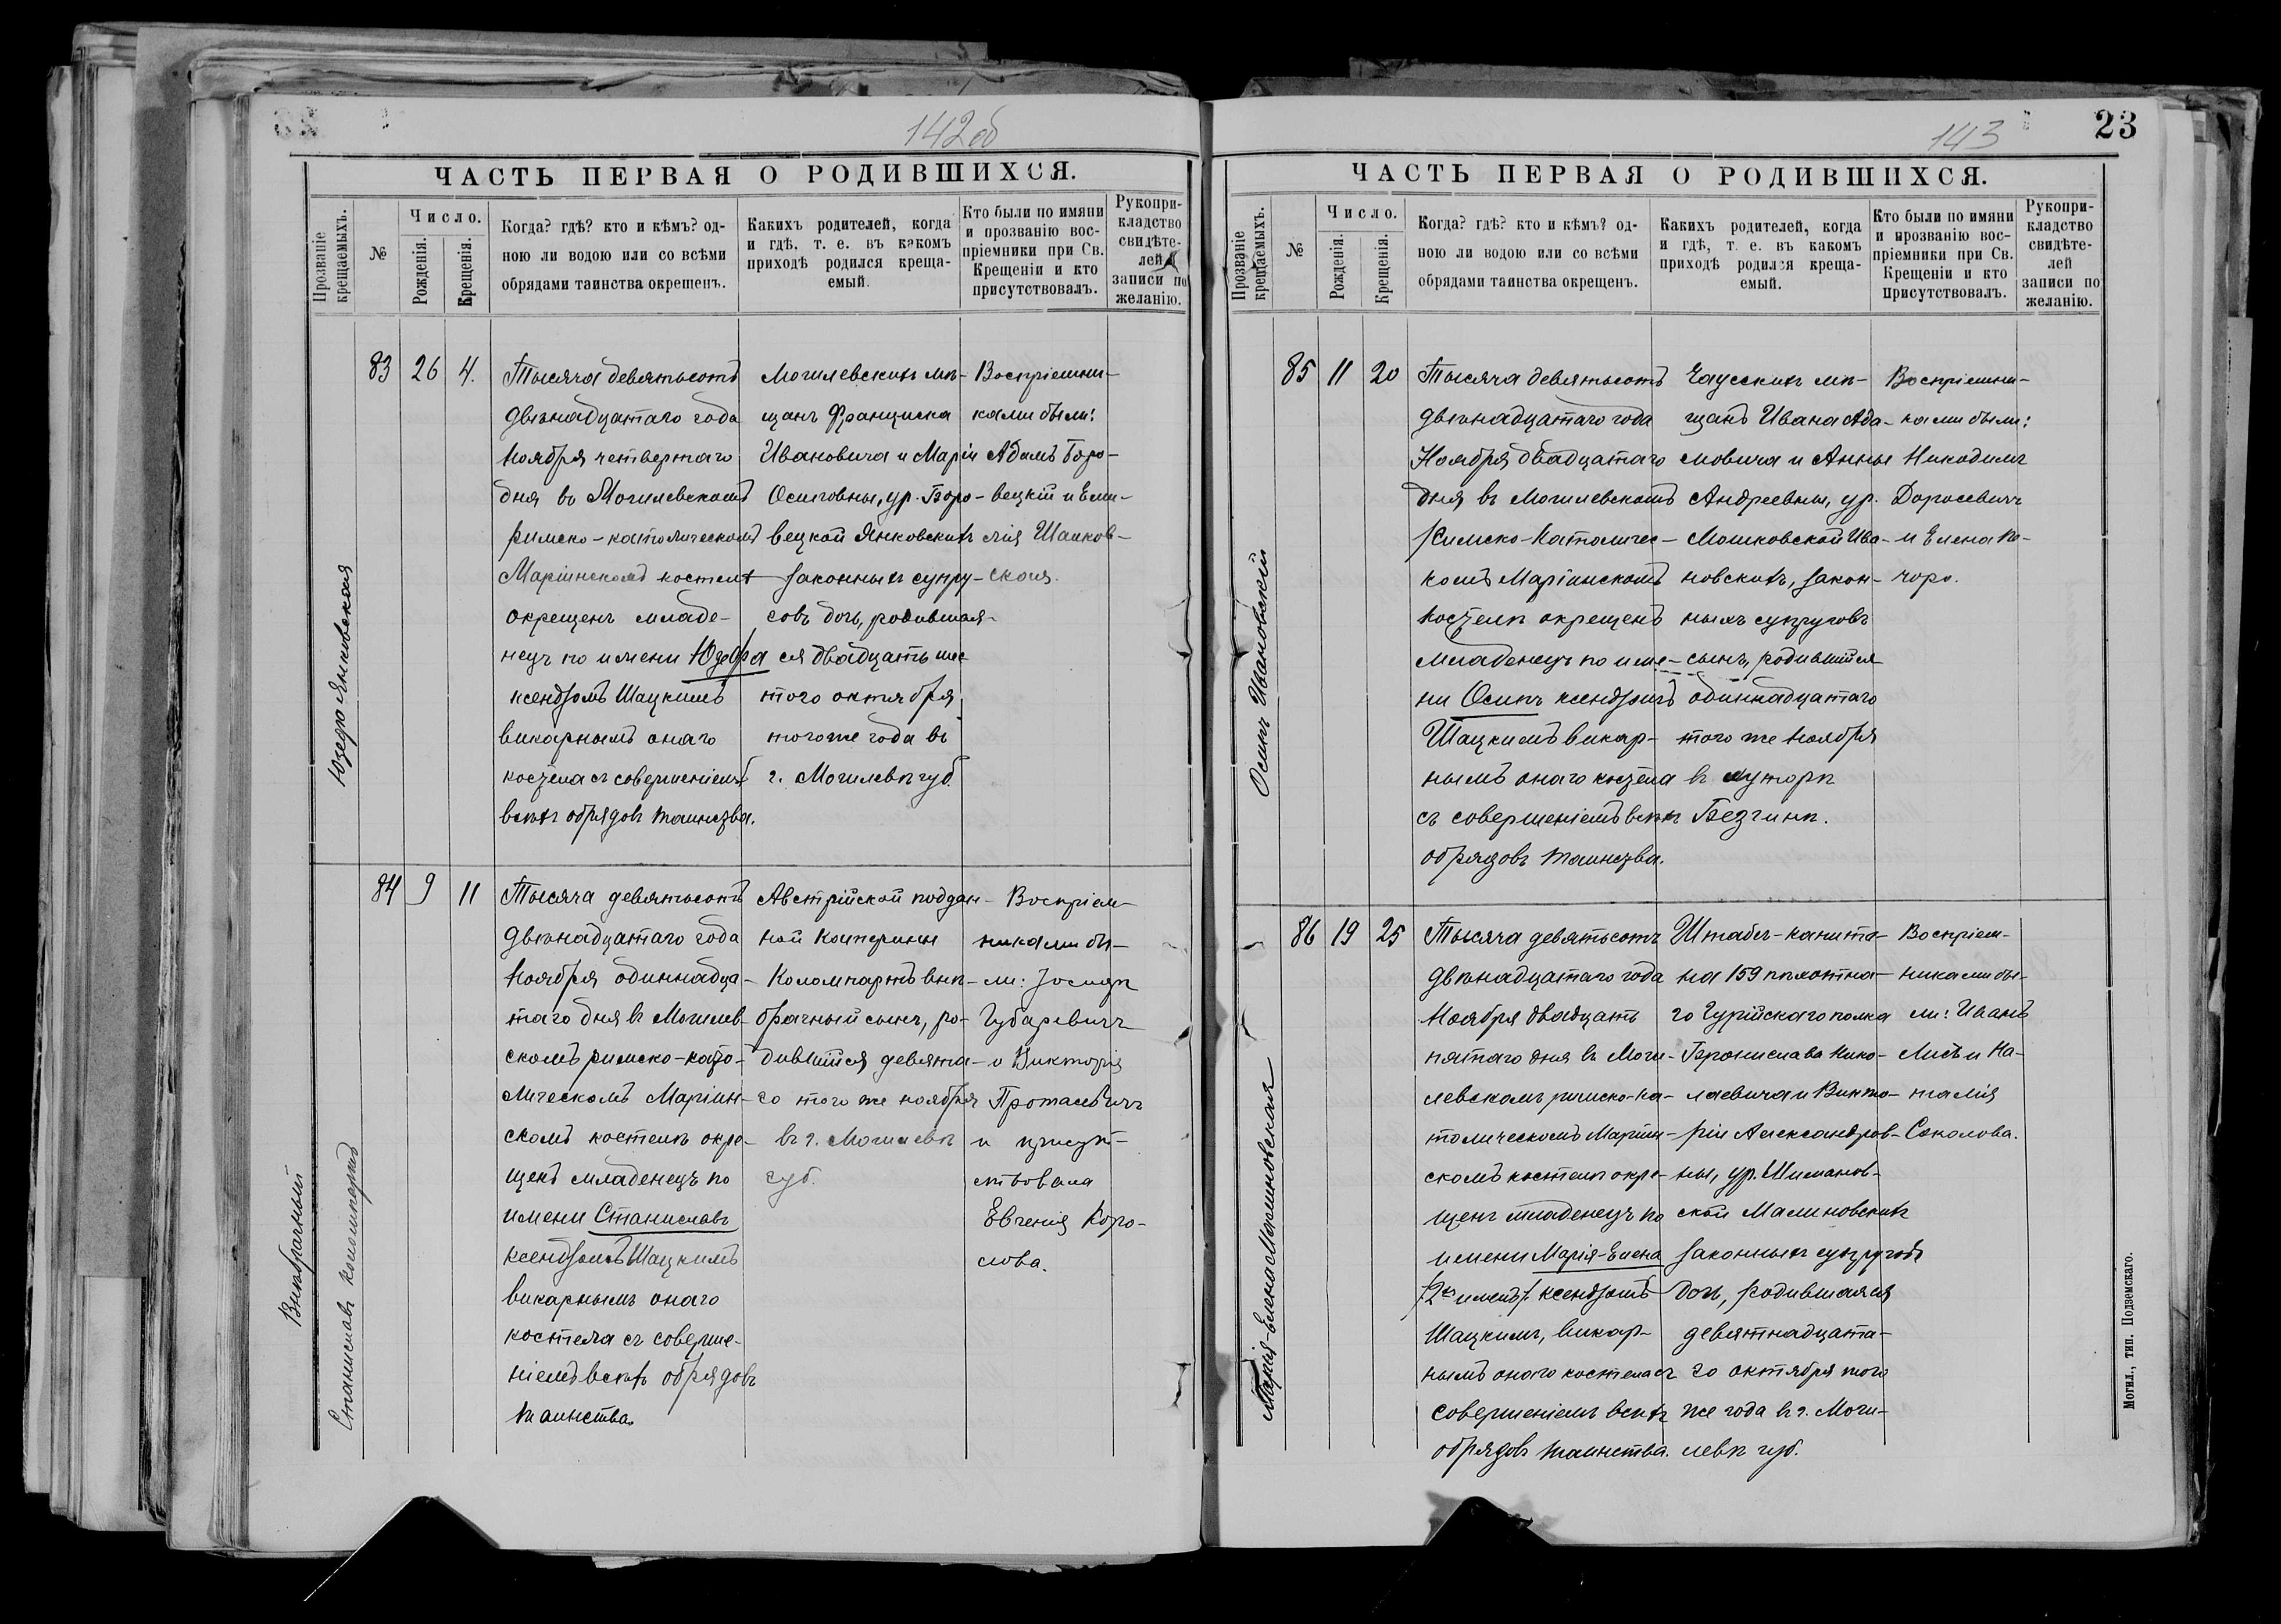 142 об
ЧАСТЬ ПЕРВАЯ О РОДИВШИХСЯ.
Прозваніе крещаемыхъ.
№
Число.
Рожденія.
Крещенія.
Когда? гдѣ? кто и кѣмъ? од-
ною ли водою или со всѣми
обрядами таинства окрещенъ.
Какихъ родителей, когда
и гдѣ, т. е. въ какомъ
приходѣ родился креща-
емый.
Кто были по имяни
и прозванію вос-
пріемники при Св.
Крещеніи и кто
присутствовалъ.
Рукопри-
кладство
свидѣте-
лей
записи по
желанію.
Юзефа Янковская
83 26 4.
Тысяча девятьсотъ
двѣнадцатаго года
Ноября четвертаго
дня въ Могилевскомъ
римско-католическомъ
Маріинскомъ костелѣ
окрещенъ младе-
нецъ по имени Юзефа
ксендзомъ Шацкимъ
викарнымъ онаго
костела съ совершеніемъ
всѣхъ обрядовъ таинства.
Могилевскихъ мѣ-
щанъ Франциска
Ивановича и Маріи
Осиповны, ур. Боро-
вецкой Янковскихъ
законныхъ супру-
говъ дочь, родившая-
ся двадцать шес-
того октября
того же года въ
г. Могилевѣ губ.
Воспріемни-
ками были:
Адамъ Боро-
вецкій и Еми-
лія Шанков-
ская.
Внѣбрачный
Станиславъ Коломпартъ
84 9 11
Тысяча девятьсотъ
двѣнадцатаго года
Ноября одиннадца-
таго дня въ Могилев-
скомъ римско-като-
лическомъ Маріин-
скомъ костелѣ окре-
щенъ младенецъ по
имени Станиславъ
ксендзомъ Шацкимъ
викарнымъ онаго
костела съ соверше-
ніемъ всѣхъ обрядовъ
таинства.
Австрійской поддан-
ной Катерины
Коломпартъ внѣ-
брачный сынъ, ро-
дившійся девята-
го того же ноября
въ г. Могилевѣ
губ.
Воспріем-
никами бы-
ли: Іосифъ
Губаревичъ
и Викторія
Протасевичъ
и присут-
ствовала
Евгенія Коро-
лова.
143
23
ЧАСТЬ ПЕРВАЯ О РОДИВШИХСЯ.
Прозваніе крещаемыхъ.
№
Число.
Рожденія.
Крещенія.
Когда? гдѣ? кто и кѣмъ? од-
ною ли водою или со всѣми
обрядами таинства окрещенъ.
Какихъ родителей, когда
и гдѣ, т. е. въ какомъ
приходѣ родился креща-
емый.
Кто были по имяни
и прозванію вос-
пріемники при Св.
Крещеніи и кто
присутствовалъ.
Рукопри-
кладство
свидѣте-
лей
записи по
желанію.
Осипъ Ивановскій
85 11 20
Тысяча девятьсотъ
двѣнадцатаго года
Ноября двадцатаго
дня въ Могилевскомъ
Римско-Католичес-
комъ Маріинскомъ
костелѣ окрещенъ
младенецъ по име-
ни Осипъ ксендзомъ
Шацкимъ викар-
нымъ онаго костела
съ совершеніемъ всѣхъ
обрядовъ таинства.
Чаусскихъ мѣ-
щанъ Ивана Ада-
мовича и Анны
Андреевны, ур.
Мошковской Ива-
новскихъ, закон-
ныхъ супруговъ
сынъ, родившійся
одиннадцатаго
того же Ноября
въ хуторѣ
Безчинѣ.
Воспріемни-
ками были:
Никодимъ
Доросевичъ
и Елена Ко-
чоро.
Марія-Елена Малиновская
86 19 25
Тысяча девятьсотъ
двѣнадцатаго года
Ноября двадцать
пятаго дня въ Моги-
левскомъ римско-ка-
толическомъ Маріин-
скомъ костелѣ окре-
щенъ младенецъ по
имени Марія-Елена
/2хъ именъ/ ксендзомъ
Шацкимъ, викар-
нымъ онаго костела съ
совершеніемъ всѣхъ
обрядовъ таинства.
Штабсъ-капита-
на 159 пѣхотна-
го Гурійскаго полка
Бронислава Нико-
лаевича и Викто-
ріи Александров-
ны, ур. Шиманов-
ской Малиновскихъ
законныхъ супруговъ
дочь, родившаяся
девятнадцата-
го октября того
же года въ г. Моги-
левѣ губ.
Воспріем-
никами бы-
ли: Иванъ
Лисъ и На-
талія
Соколова.
Могил., тип. Подземскаго.